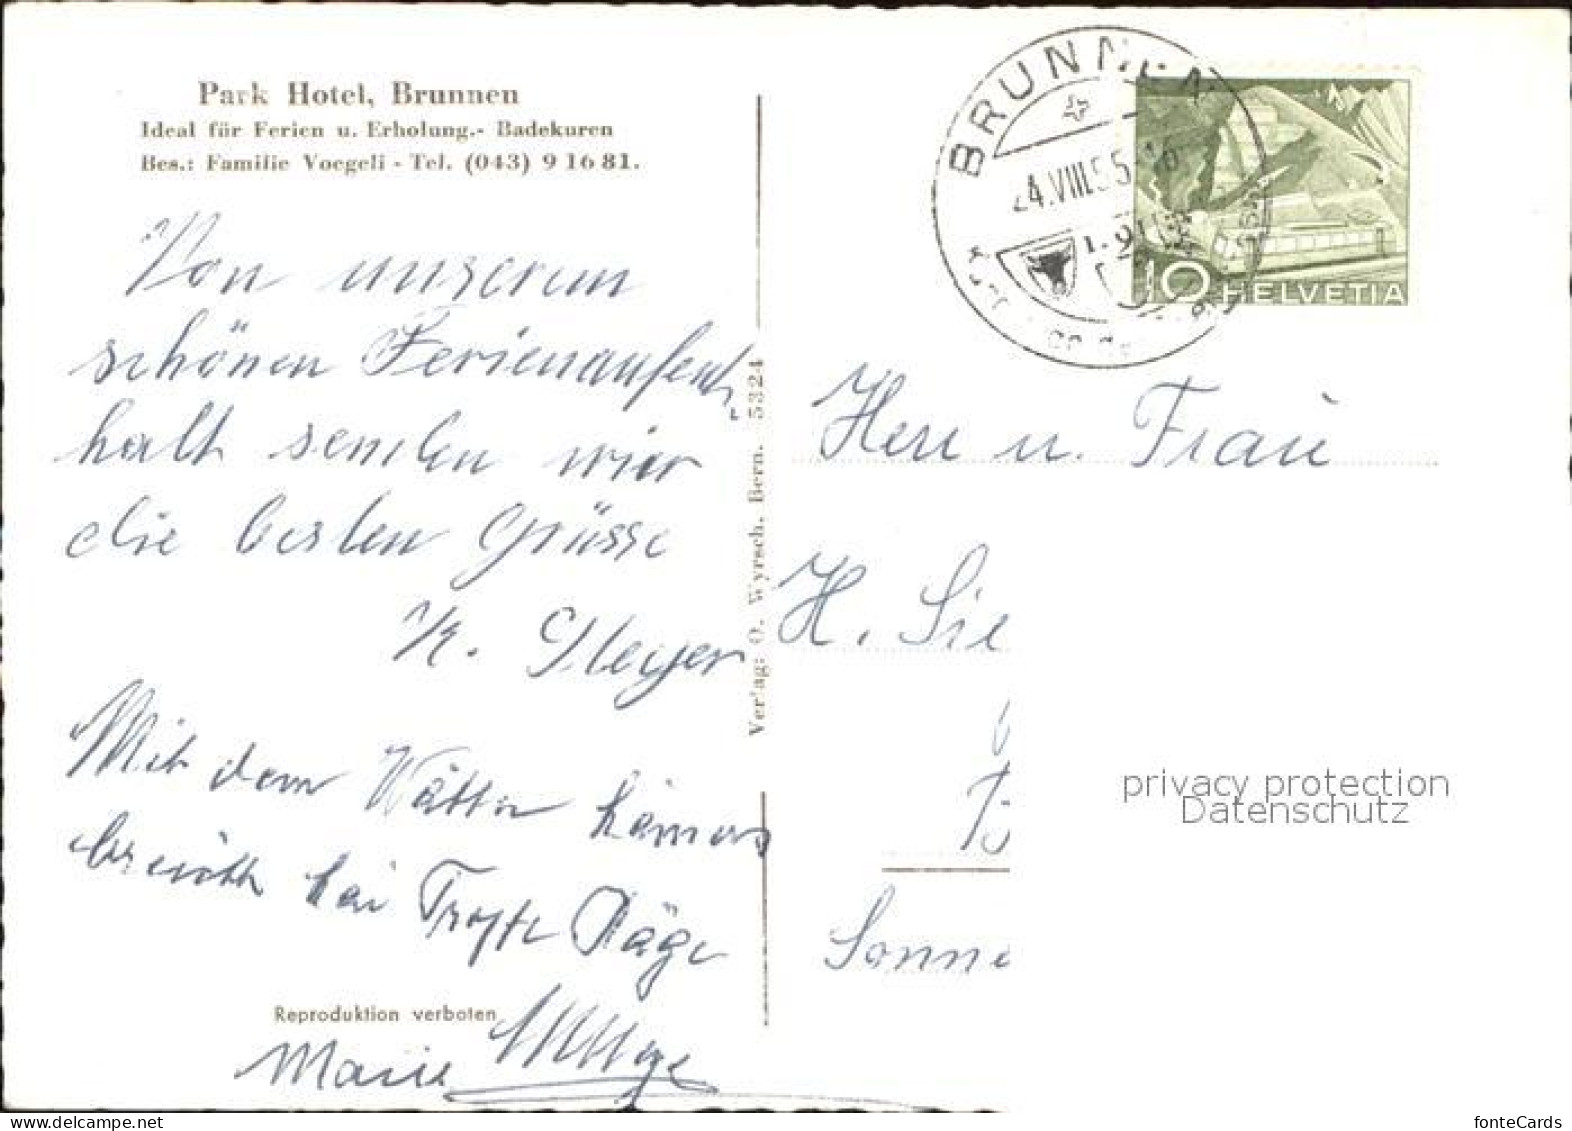 Park Hotel, Brunnen
Ideal für Ferien u. Erholung.- Badekuren
Bes.: Familie Voegeli - Tel. (043) 9 16 81.
Von unserem
schönen Ferienaufent,
halt senden wir
die besten Grüsse
K. Meyer
Mit dem Wätter
bei Tropfe Räge
Reproduktion verboten
Marie
Verlag: O. Wyrsch, Bern. 5324
BRUNNEN
24.VIII.55
10 HELVETIA
Herr u. Frau
H. Sie
Sonne
privacy protection
Datenschutz
fonteCards